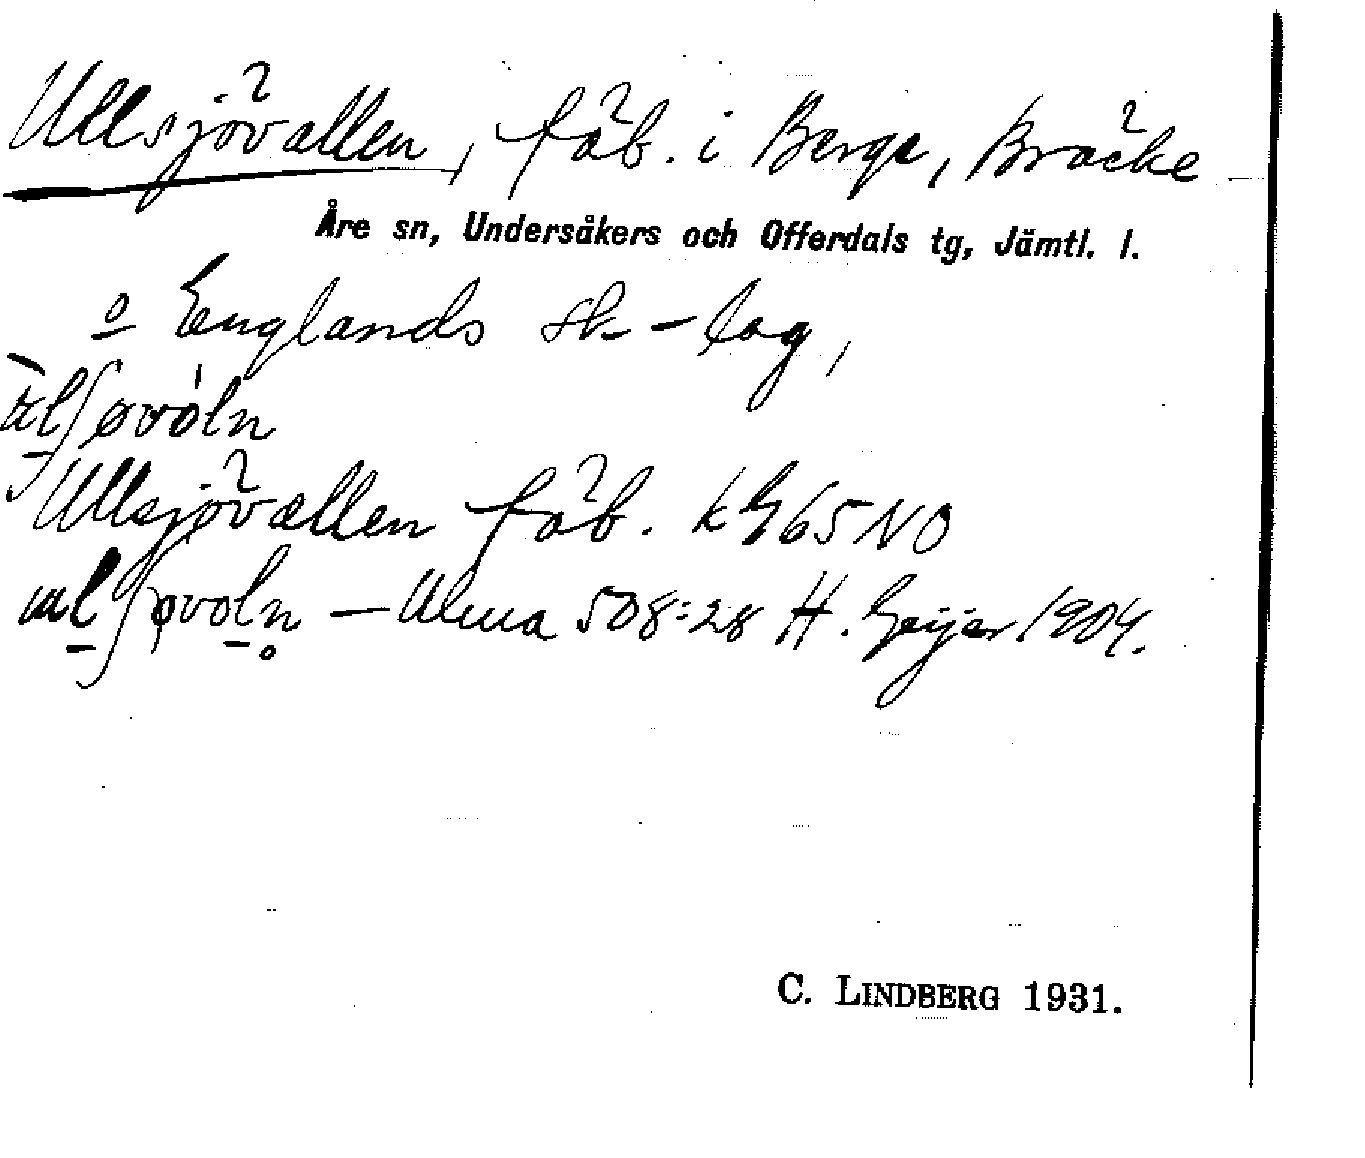 Ullsjövallen, fäb. i Berge, Bräcke
Åre sn, Undersåkers och Offerdals tg, Jämtl. l.
o Englands sk-lag,
Ullsjövallen fäb. kG65NO
— Ulma 508:28 H. Geijer 1904.
C. LINDBERG 1931.